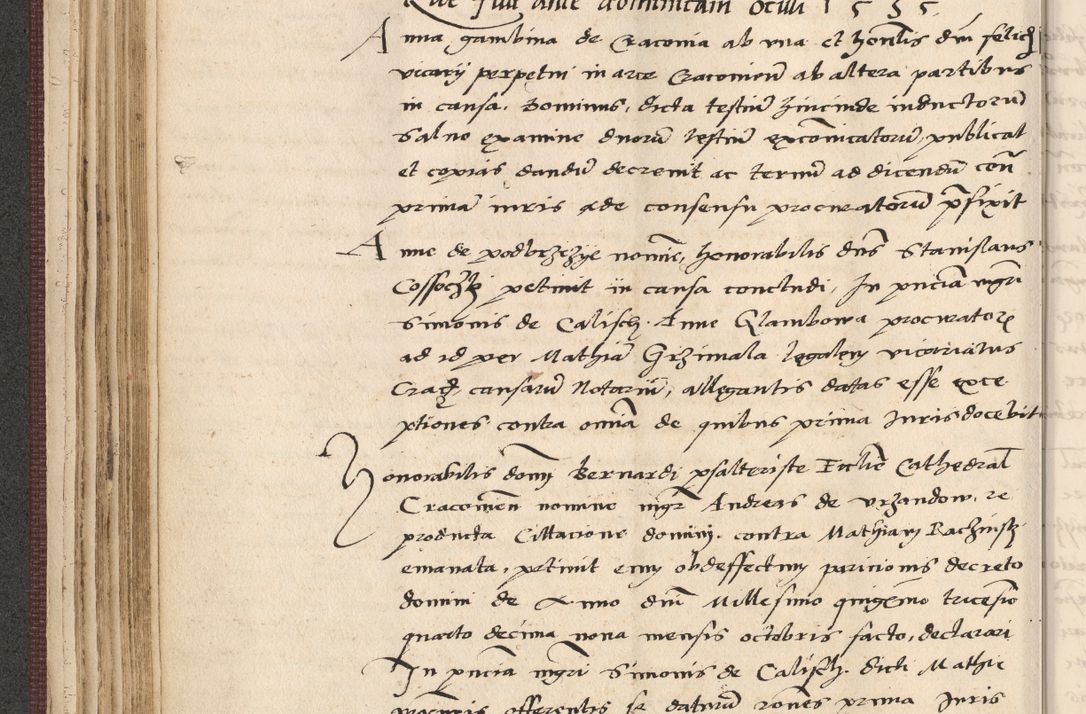 Que fuit ante dominicam Oculi 1535.
Anna gambina de Craconia ab vna et honlis dm felicis
vicarij perpetui in arce Cracouien ab altera partibus
in causa. Dominus, dicta testiu hincinde inductoru
saluo examine duoru testiu excoicatoru publicat
et copias dandu decreuit ac termu ad dicendu con
prima iuris ade consensu procuratoru pfixit
Anne de podbrzezye nomie, honorabilis dns Stanislaus
petiuit in causa concludi, In pncia mgri
Simonis de Calisch. Anne Glambowa procurator
ad id per Mathia Grzimala legalem vicariatus
Crac. causaru Notariu, allegantis datas esse exce
ptiones contra omia de quibus prima Iuris docebit
Honorabilis domi Bernardi psalteriste Ecclie Cathedral
Cracouien nomine mgr Andreas de Vrzandow, re
producta Cittacione domini. contra Mathiam Raczinski
emanata, petiuit eum ob deffectum paricionis decreto
domini de Anno dni Millesimo quigemo tricesio
quarto decima nona mensis octobris facto, declarari
In pncia mgri Simonis de Calisch. dicti Mathie
procuris offerentis se daturu rones prima Iuris